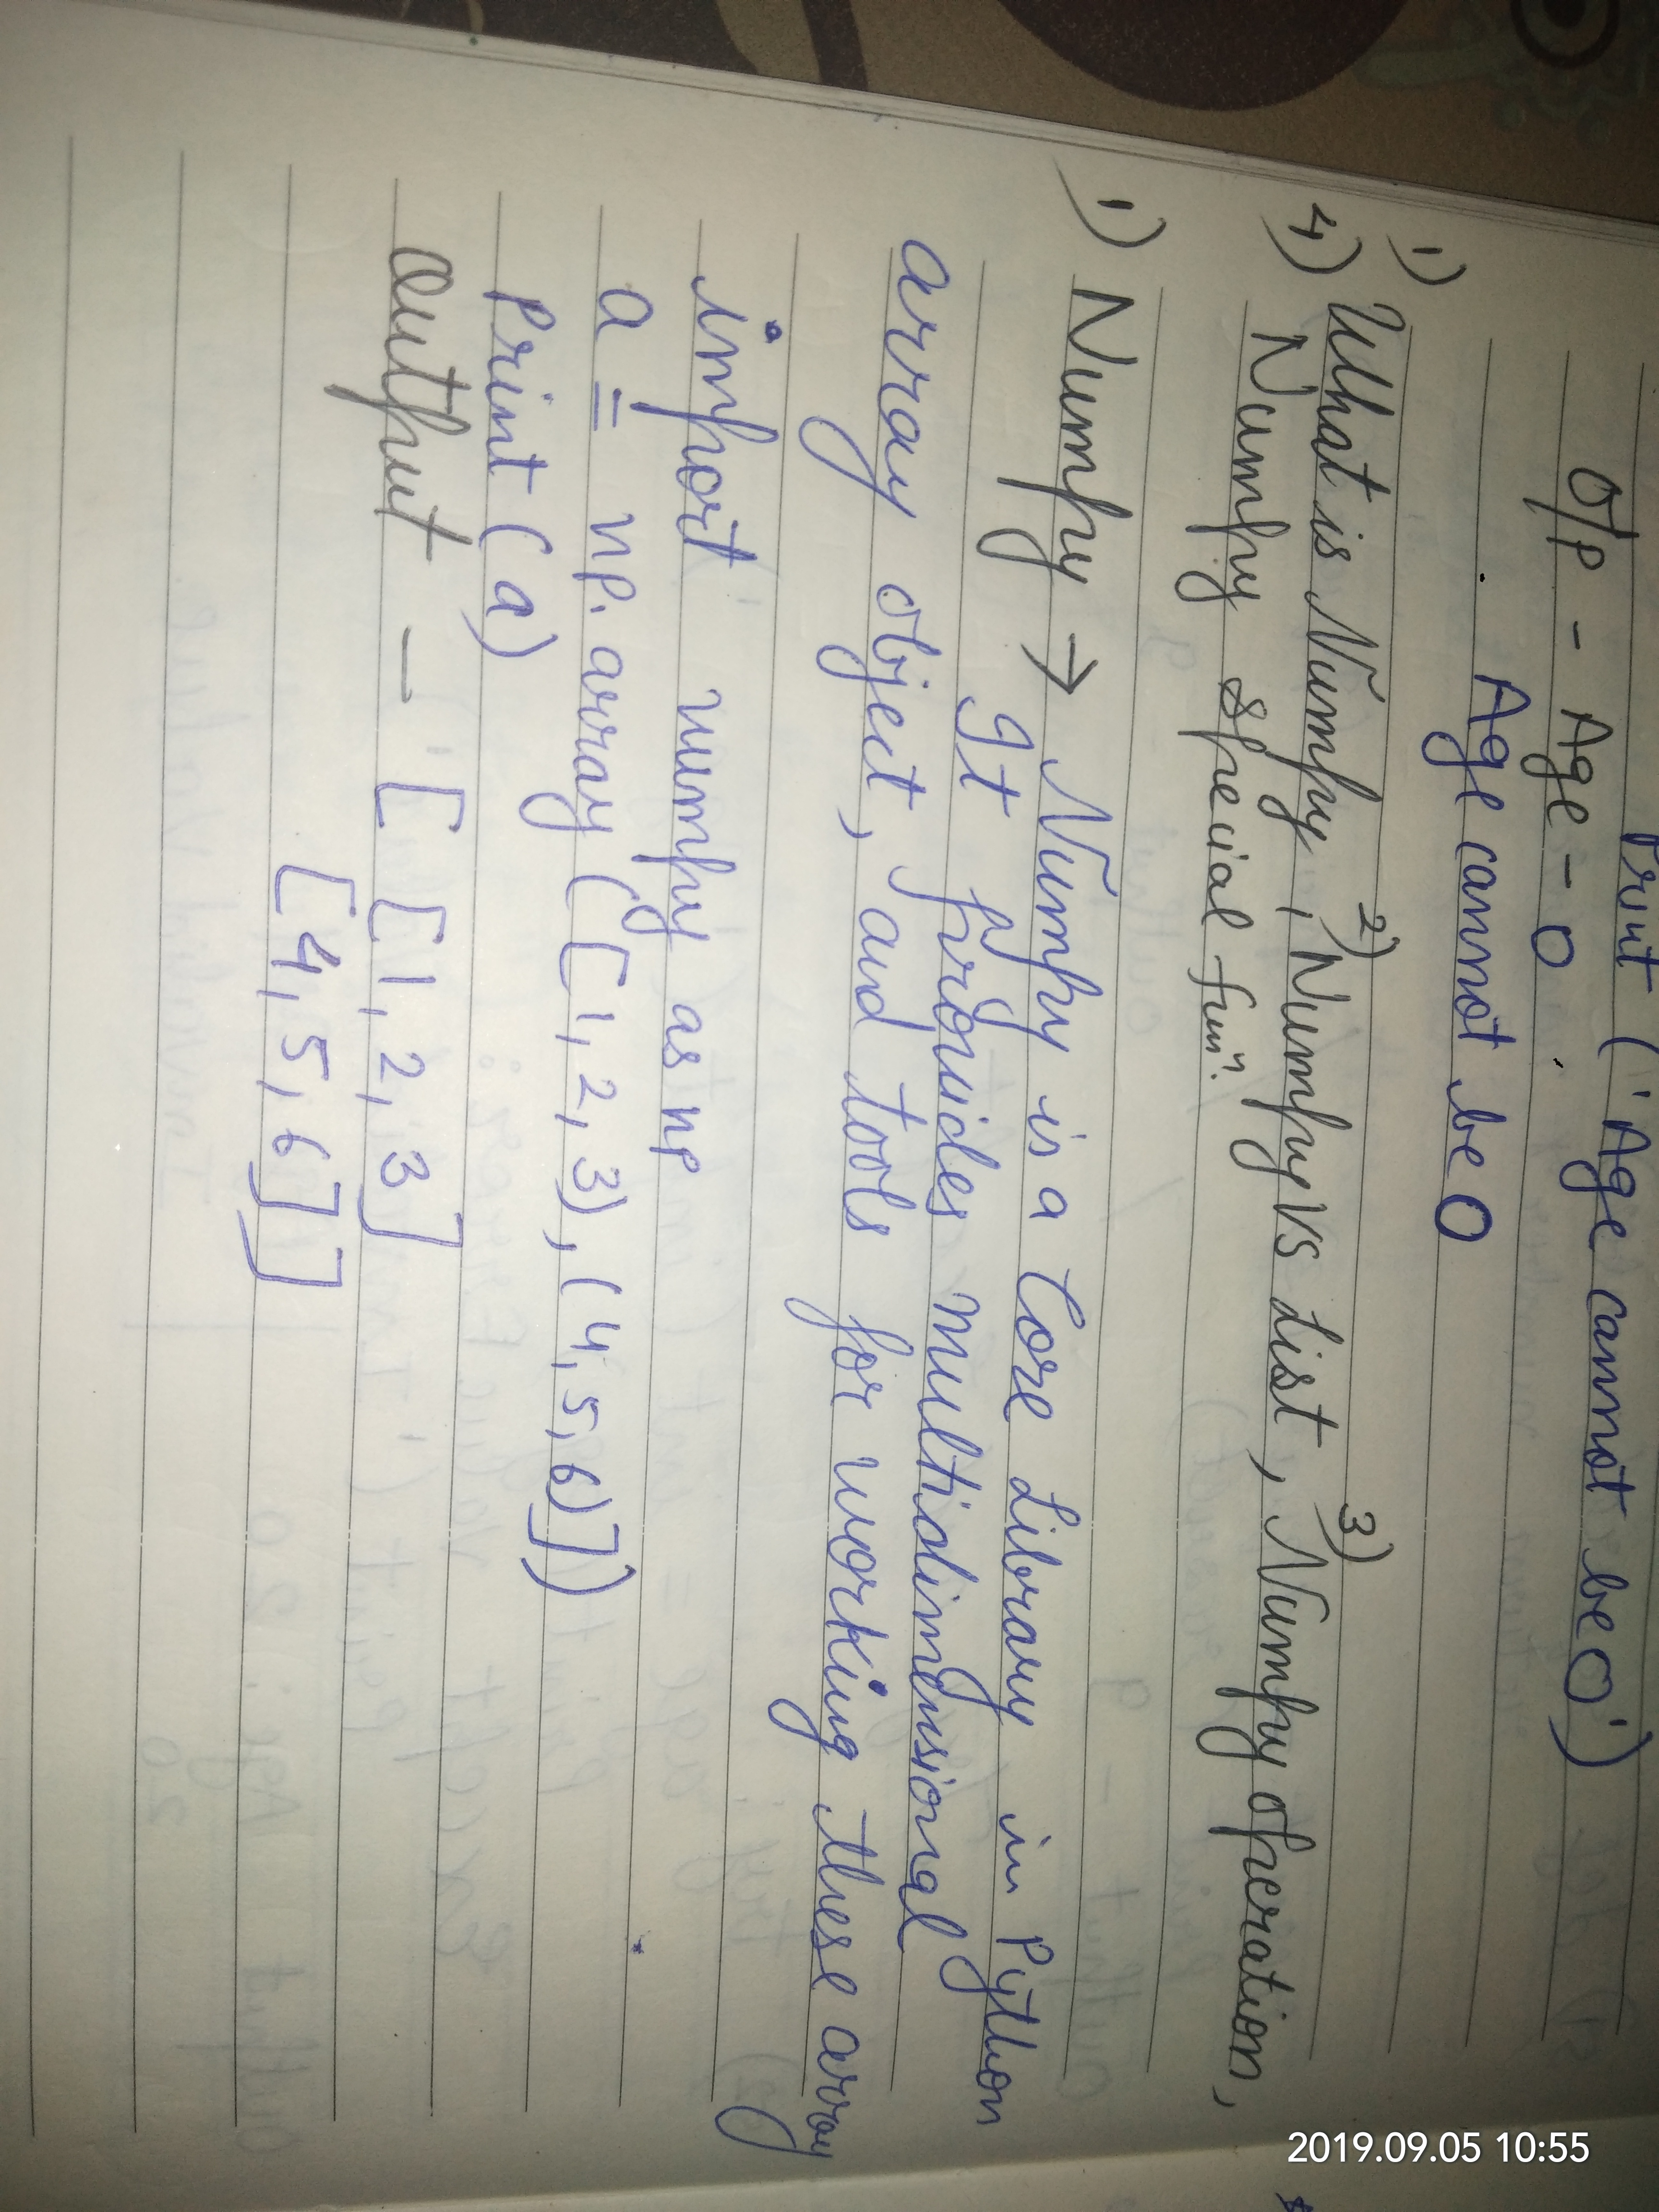 Print ('Age cannot be 0')
O/P - Age - 0
Age cannot be 0
1) 2) 3)
4) What is Numpy, Numpy vs List, Numpy operation,
Numpy special funⁿ.
1) Numpy → Numpy is a Core Library in Python
It provides multidimensional
array object, and tools for working these array
import numpy as np
a = np.array ([1,2,3), (4,5,6)])
Print (a)
output - [[1,2,3]
[4,5,6]]
2019.09.05 10:55